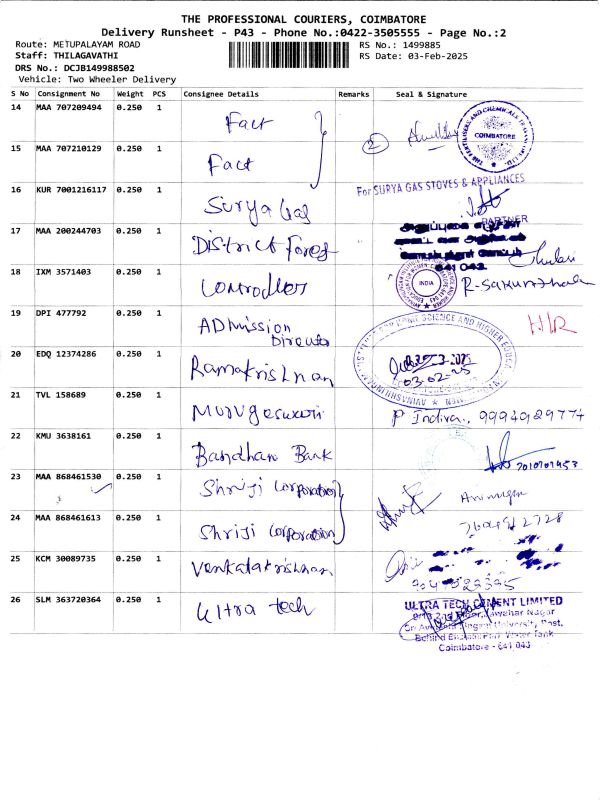 THE PROFESSIONAL COURIERS, COIMBATORE
Delivery Runsheet - P43 - Phone No.:0422-3505555 - Page No.:2
Route: METUPALAYAM ROAD
RS No.: 1499885
Staff: THILAGAVATHI
RS Date: 03-Feb-2025
DRS No.: DCJB149988502
Vehicle: Two Wheeler Delivery
S No Consignment No Weight PCS Consignee Details Remarks Seal & Signature
14 MAA 707209494 0.250 1 Fact
COIMBATORE
15 MAA 707210129 0.250 1 Fact
2
16 KUR 7001216117 0.250 1 Surya Gas
For SURYA GAS STOVES & APPLIANCES
PARTNER
17 MAA 200244703 0.250 1 District Forest
641 043
18 IXM 3571403 0.250 1 Controller
INDIA
19 DPI 477792 0.250 1 ADmission Director
20 EDQ 12374286 0.250 1 Ramakrishnan
03-02-25
21 TVL 158689 0.250 1 Murugeswari
P Indira, 9994989774
22 KMU 3638161 0.250 1 Bandhan Bank
23 MAA 868461530 0.250 1 Shriji Corporation
24 MAA 868461613 0.250 1 Shriji Corporation
25 KCM 30089735 0.250 1 Venkatakrishnan
26 SLM 363720364 0.250 1 Ultra tech
ULTRA TECH CEMENT LIMITED
Coimbatore - 641 043